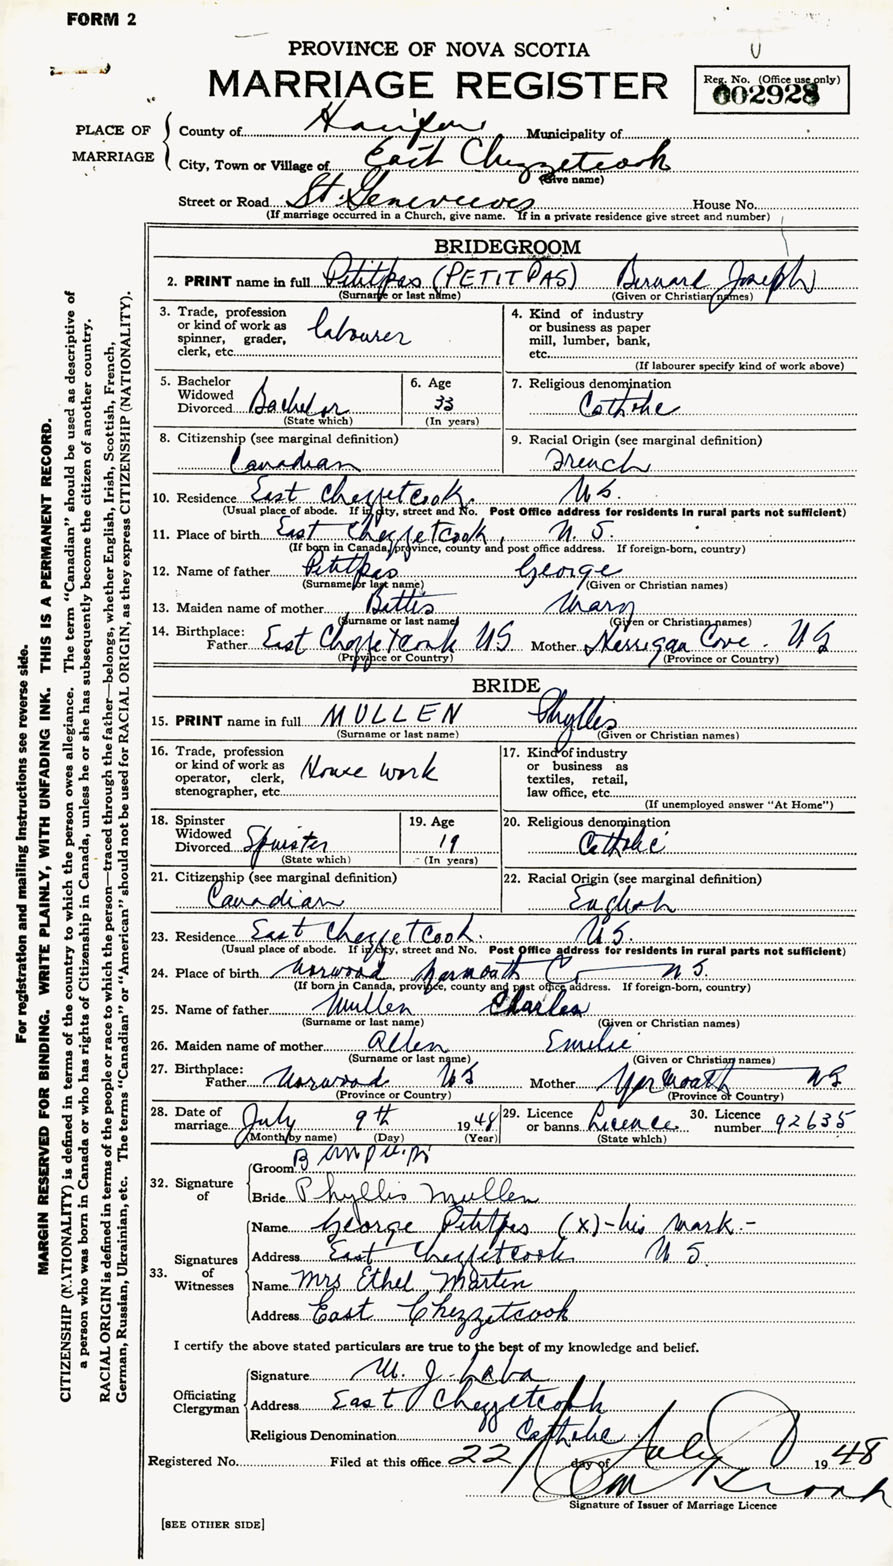 FORM 2
PROVINCE OF NOVA SCOTIA
MARRIAGE REGISTER
Reg. No. (Office use only)
002928
PLACE OF MARRIAGE
County of Halifax Municipality of
City, Town or Village of East Chezzetcook
(Give name)
Street or Road St. Genevieves House No.
(If marriage occurred in a Church, give name. If in a private residence give street and number)
BRIDEGROOM
2. PRINT name in full Petitpas (PETITPAS) Bernard Joseph
(Surname or last name) (Given or Christian names)
3. Trade, profession or kind of work as spinner, grader, clerk, etc. labourer
4. Kind of industry or business as paper mill, lumber, bank, etc.
(If labourer specify kind of work above)
5. Bachelor Widowed Divorced Bachelor
(State which)
6. Age 33
(In years)
7. Religious denomination
Catholic
8. Citizenship (see marginal definition)
Canadian
9. Racial Origin (see marginal definition)
French
10. Residence East Chezzetcook. N S.
(Usual place of abode. If in city, street and No. Post Office address for residents in rural parts not sufficient)
11. Place of birth East Chezzetcook, N. S.
(If born in Canada, province, county and post office address. If foreign-born, country)
12. Name of father Petitpas George
(Surname or last name) (Given or Christian names)
13. Maiden name of mother Bettis Mary
(Surname or last name) (Given or Christian names)
14. Birthplace:
Father East Chezzetcook NS Mother Cove. NS
(Province or Country) (Province or Country)
BRIDE
15. PRINT name in full MULLEN Phyllis
(Surname or last name) (Given or Christian names)
16. Trade, profession or kind of work as operator, clerk, stenographer, etc. House work
17. Kind of industry or business as textiles, retail, law office, etc.
(If unemployed answer "At Home")
18. Spinster Widowed Divorced Spinster
(State which)
19. Age 19
(In years)
20. Religious denomination
Catholic
21. Citizenship (see marginal definition)
Canadian
22. Racial Origin (see marginal definition)
English
23. Residence East Chezzetcook. N.S.
(Usual place of abode. If in city, street and No. Post Office address for residents in rural parts not sufficient)
24. Place of birth Norwood Yarmouth Co N S.
(If born in Canada, province, county and post office address. If foreign-born, country)
25. Name of father Mullen Charles
(Surname or last name) (Given or Christian names)
26. Maiden name of mother Allen Emilie
(Surname or last name) (Given or Christian names)
27. Birthplace:
Father Norwood NS Mother Yarmouth NS
(Province or Country) (Province or Country)
28. Date of marriage July 9th 1948
(Month by name) (Day) (Year)
29. Licence or banns Licence.
(State which)
30. Licence number 92635
32. Signature of
Groom B
Bride Phyllis Mullen
33. Signatures of Witnesses
Name George Petitpas (x)-his mark.-
Address East Chezzetcook N S.
Name Mrs Ethel Martin
Address East Chezzetcook
I certify the above stated particulars are true to the best of my knowledge and belief.
Officiating Clergyman
Signature W. J. Laba
Address East Chezzetcook
Religious Denomination Catholic
Registered No. Filed at this office 22 day of July 1948
Signature of Issuer of Marriage Licence
[SEE OTHER SIDE]
For registration and mailing instructions see reverse side.
MARGIN RESERVED FOR BINDING. WRITE PLAINLY, WITH UNFADING INK. THIS IS A PERMANENT RECORD.
CITIZENSHIP (NATIONALITY) is defined in terms of the country to which the person owes allegiance. The term "Canadian" should be used as descriptive of
a person who was born in Canada or who has rights of Citizenship in Canada, unless he or she has subsequently become the citizen of another country.
RACIAL ORIGIN is defined in terms of the people or race to which the person—traced through the father—belongs, whether English, Irish, Scottish, French,
German, Russian, Ukrainian, etc. The terms "Canadian" or "American" should not be used for RACIAL ORIGIN, as they express CITIZENSHIP (NATIONALITY).